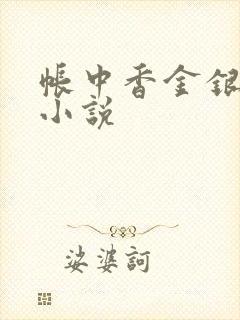 帳中香金銀
小說
娑婆訶